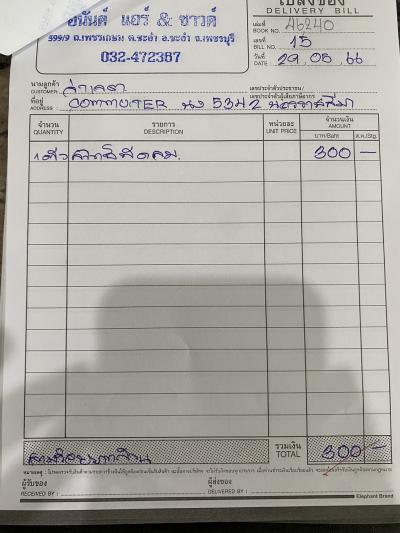 ใบส่งของ
DELIVERY BILL
อนันต์ แอร์ & ซาวด์
599/9 ถ.เพชรเกษม ต.ชะอำ อ.ชะอำ จ.เพชรบุรี
032-472367
เล่มที่ BOOK NO. 46240
เลขที่ BILL NO. 15
วันที่ DATE 29.05.66
นามลูกค้า CUSTOMER
เลขประจำตัวประชาชน /
เลขประจำตัวผู้เสียภาษีอากร
ที่อยู่ ADDRESS COMMUTER นง 5342 นครราชสีมา
จำนวน รายการ หน่วยละ จำนวนเงิน
QUANTITY DESCRIPTION UNIT PRICE AMOUNT
บาท/Baht ส.ต./Stg.
1 ตัว 300 —
รวมเงิน
TOTAL 300 —
สามร้อยบาทถ้วน
ผู้รับของ ผู้ส่งของ
RECEIVED BY : DELIVERED BY :
Elephant Brand